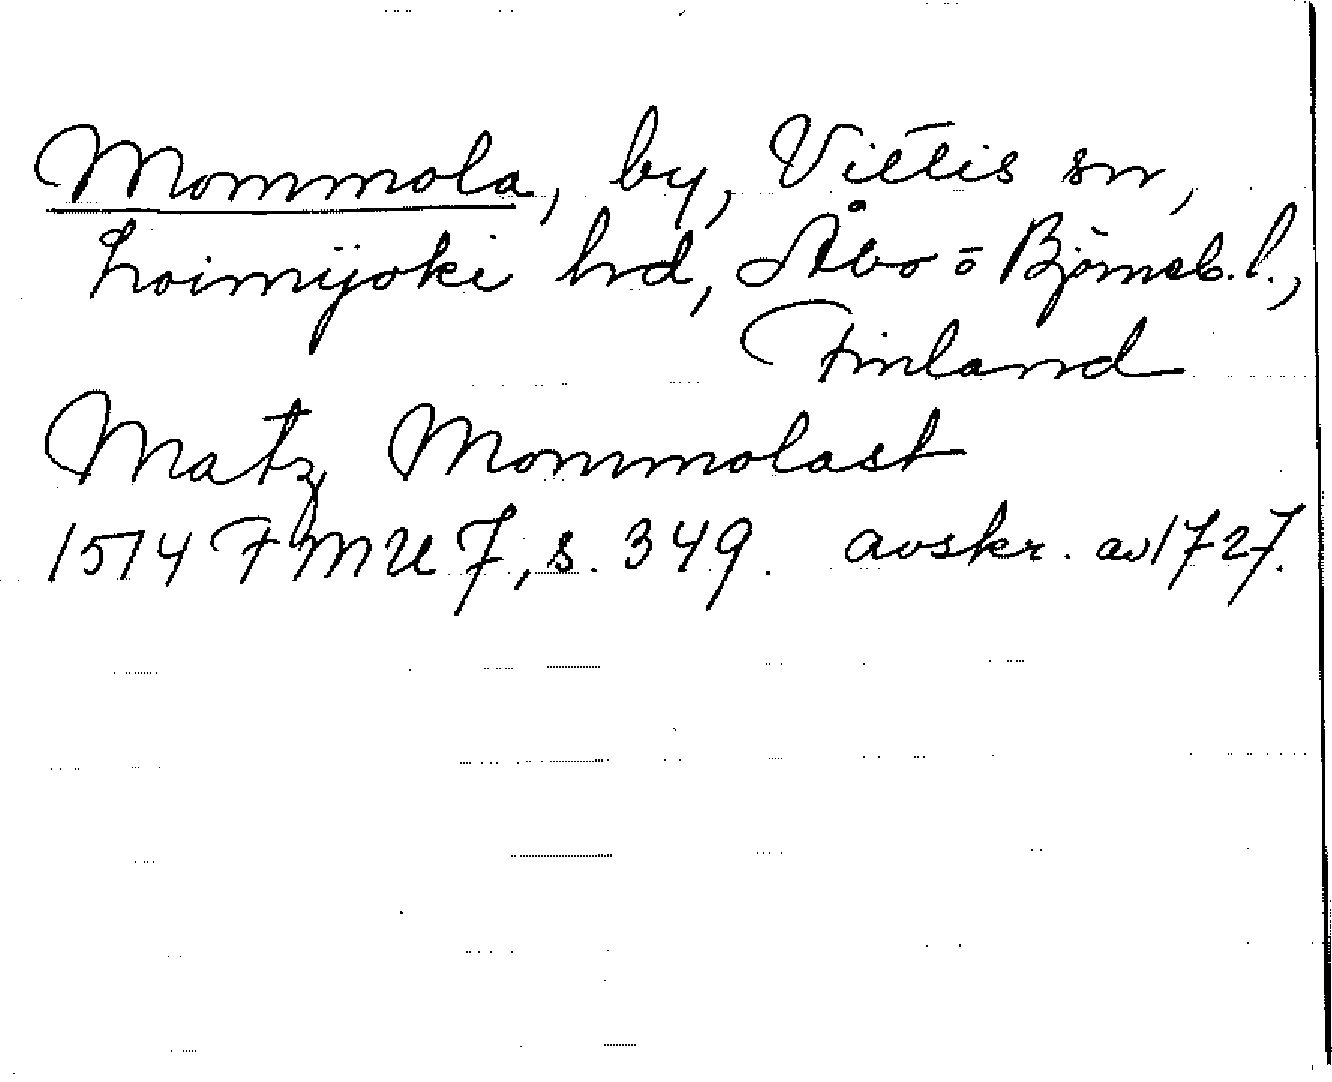 Mommola, by, Vittis sn,
Loimijoki hd, Åbo o Björneb. l.,
Finland
Matz Mommolast
1514 FMU 7, s. 349. avskr. av 1727.